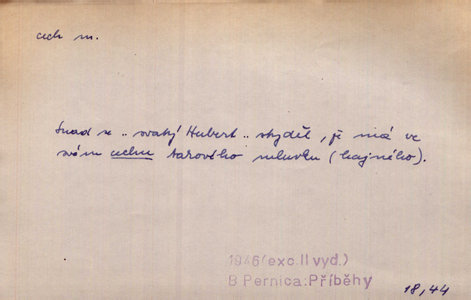 cech m.
Snad se „ svatý Hubert „ styděl, že má ve
svém cechu takového mluvku (hajného).
1946 (exc. II vyd.)
B Pernica: Příběhy
18,44